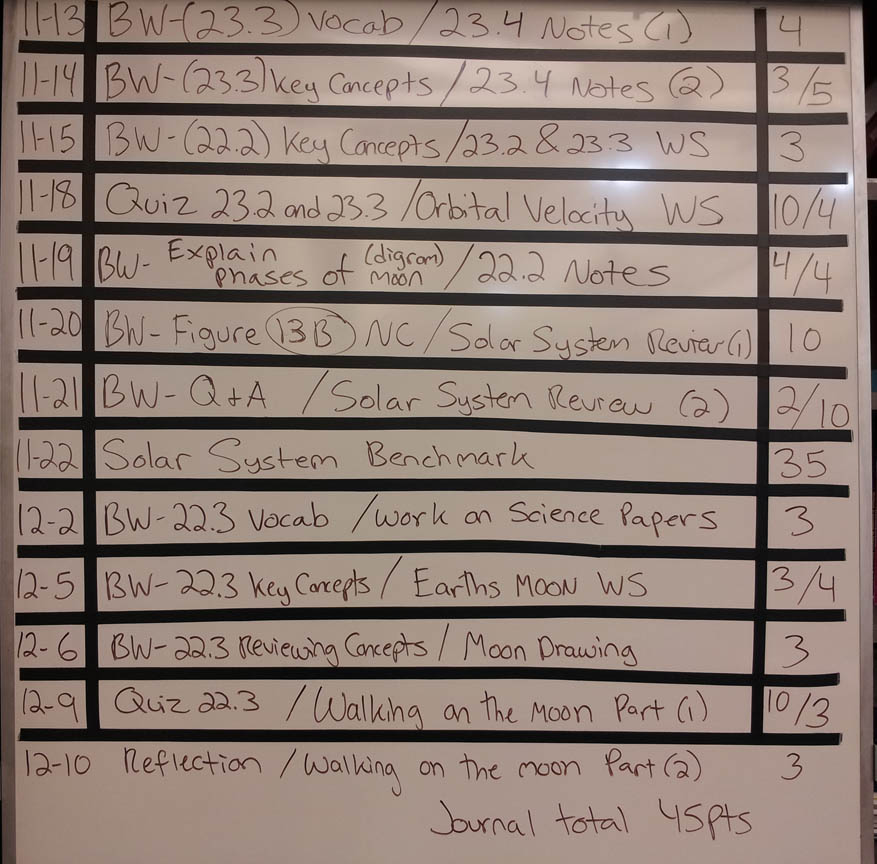 11-13 BW-(23.3) Vocab / 23.4 Notes (1) 4
11-14 BW-(23.3) Key Concepts / 23.4 Notes (2) 3/5
11-15 BW-(22.2) Key Concepts / 23.2 & 23.3 WS 3
11-18 Quiz 23.2 and 23.3 / Orbital Velocity WS 10/4
11-19 BW- Explain phases of (digram) moon / 22.2 Notes 4/4
11-20 BW- Figure 13B NC / Solar System Review (1) 10
11-21 BW- Q+A / Solar System Review (2) 2/10
11-22 Solar System Benchmark 35
12-2 BW-22.3 Vocab / work on Science Papers 3
12-5 BW-22.3 Key Concepts / Earths Moon WS 3/4
12-6 BW-22.3 Reviewing Concepts / Moon Drawing 3
12-9 Quiz 22.3 / Walking on the Moon Part (1) 10/3
12-10 Reflection / Walking on the moon Part (2) 3
Journal total 45pts